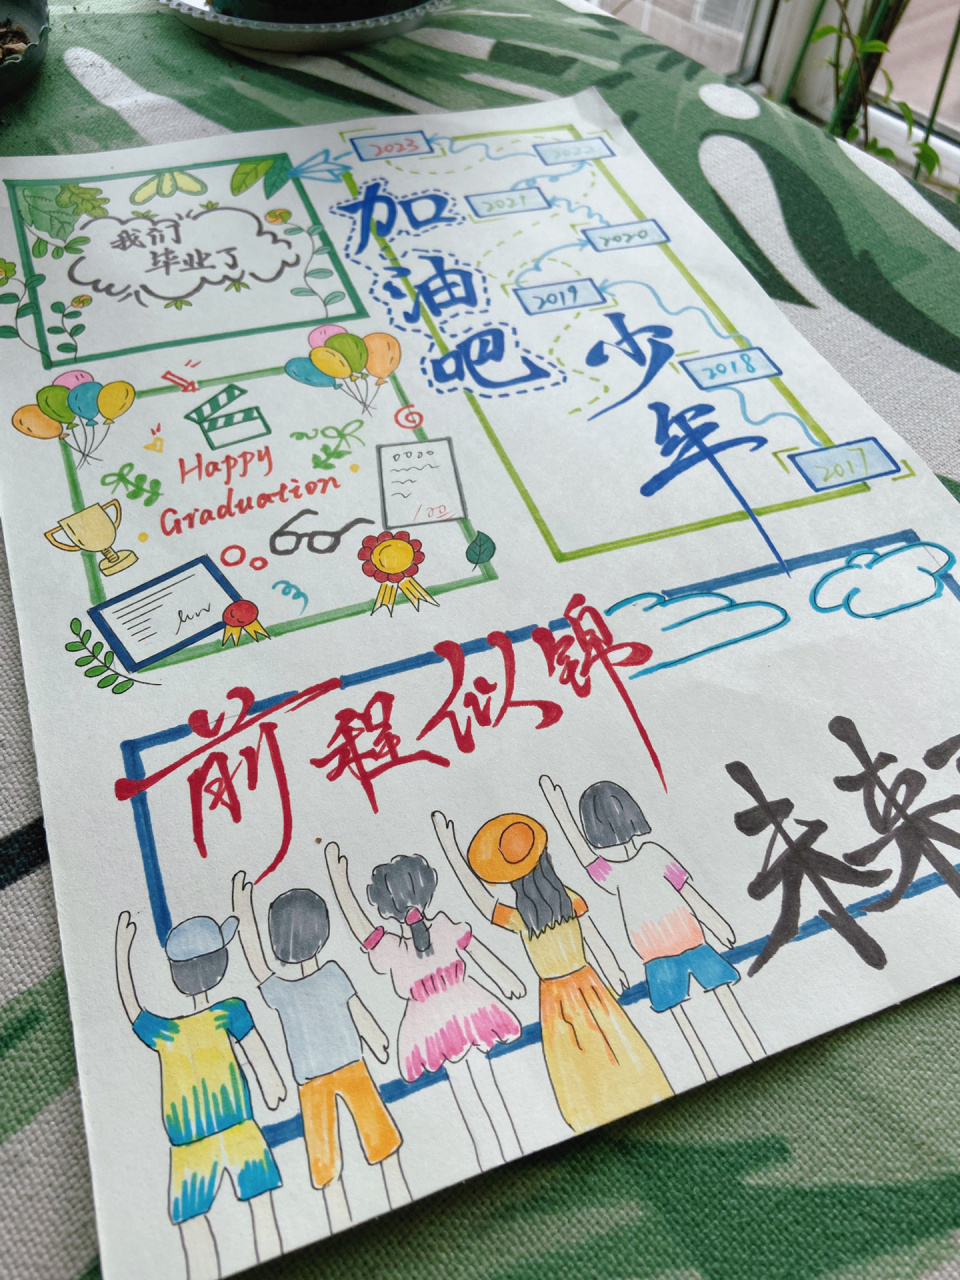 我们
毕业了
Happy
Graduation
100
2023
2022
2021
2020
2019
2018
2017
加油吧
少年
前程似锦
未来